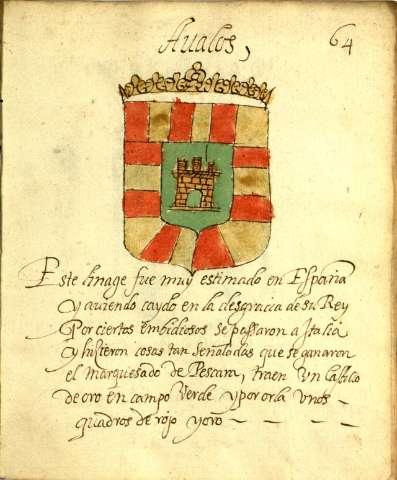 Aualos,
64
Este linage fue muy estimado en España
y auiendo caydo en la desgracia de su Rey
Por ciertos embidiosos se passaron a Italia
y hisieron cosas tan señaladas que se ganaron
el marquesado de Pescara, traen un castillo
de oro en campo verde y por orla unos
quadros de rojo y oro